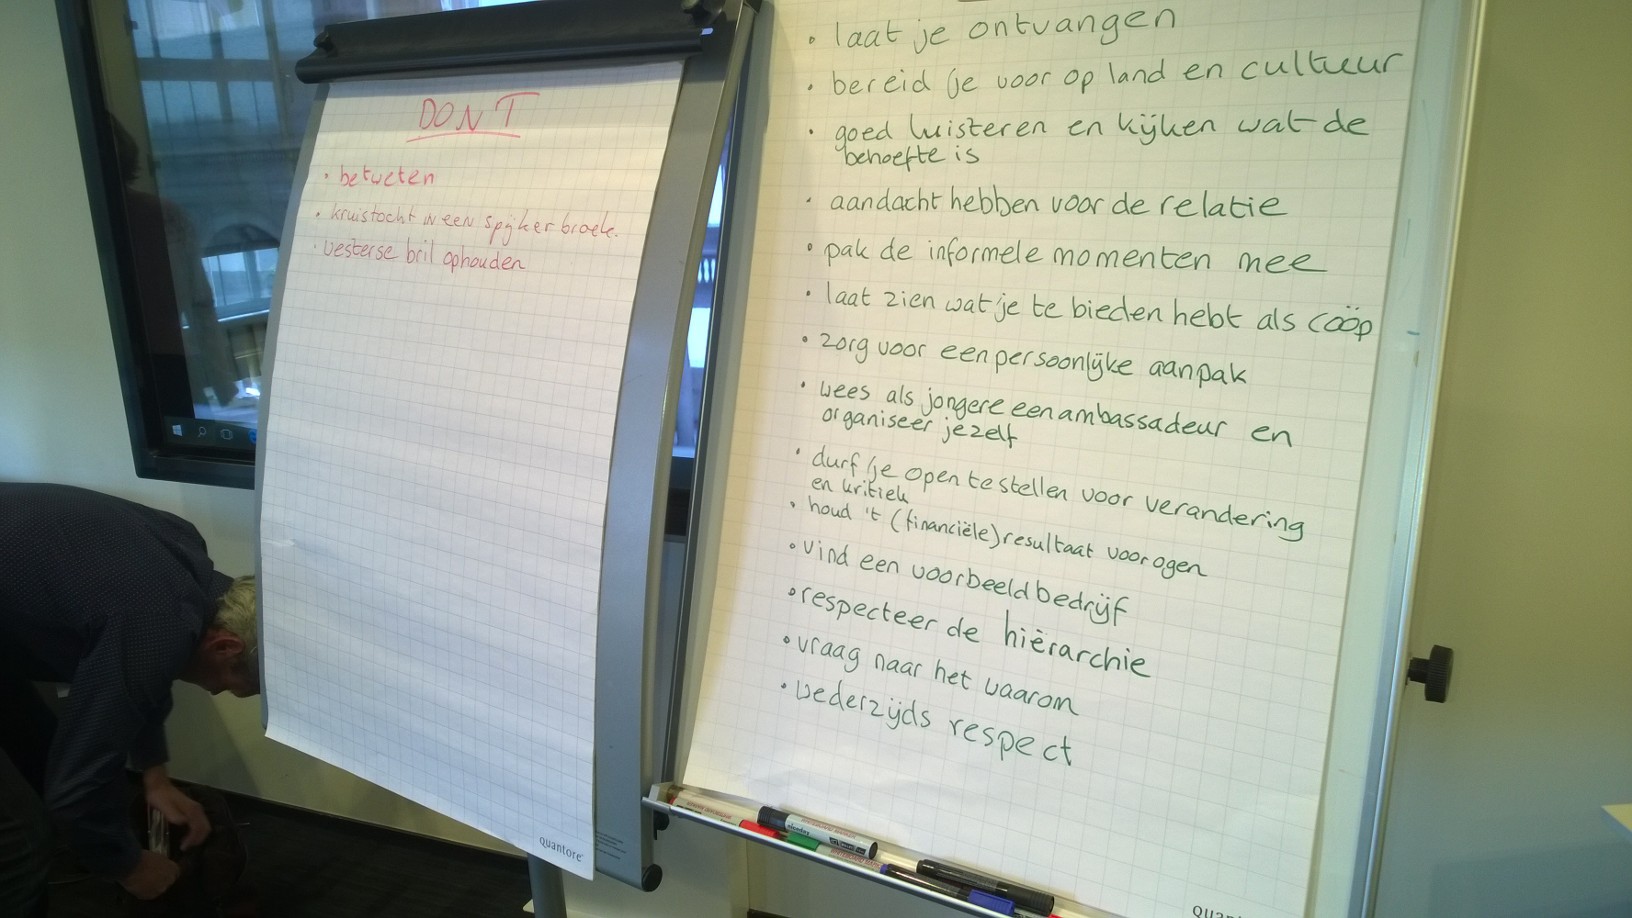 DON'T
· betweten
· kruistocht in een spijkerbroek.
· westerse bril ophouden
quantore
· laat je ontvangen
· bereid je voor op land en cultuur
· goed luisteren en kijken wat de
behoefte is
· aandacht hebben voor de relatie
· pak de informele momenten mee
· laat zien wat je te bieden hebt als coöp
· zorg voor een persoonlijke aanpak
· wees als jongere een ambassadeur en
organiseer jezelf
· durf je open te stellen voor verandering
en kritiek
· houd 't (financiële) resultaat voor ogen
· vind een voorbeeldbedrijf
· respecteer de hiërarchie
· vraag naar het waarom
· wederzijds respect